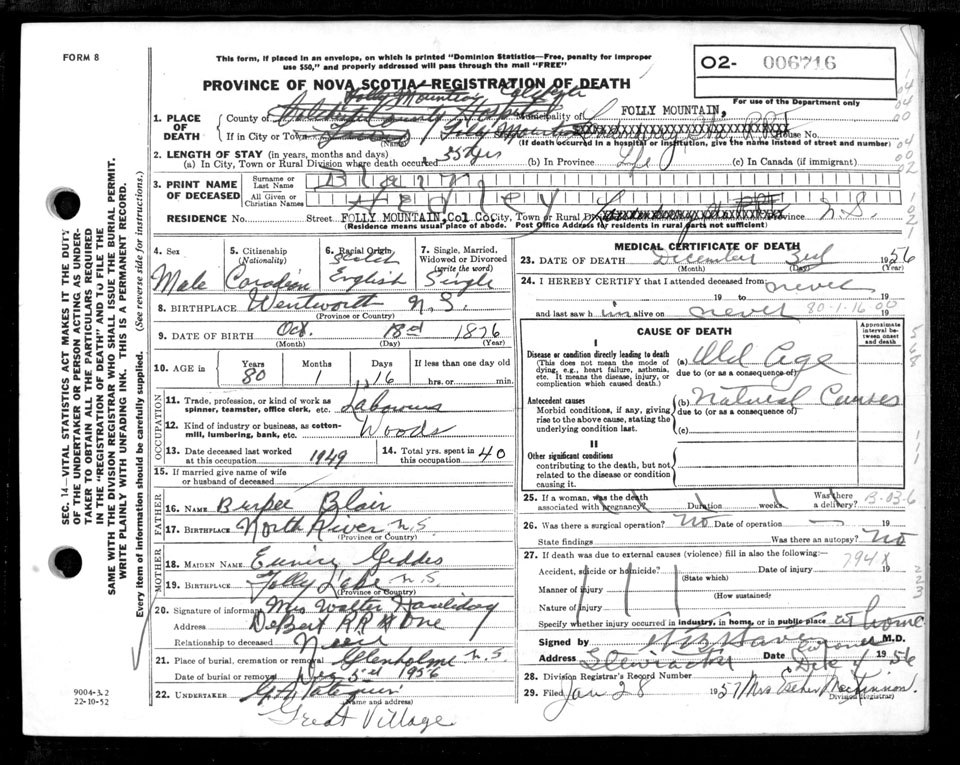 FORM 8
This form, if placed in an envelope, on which is printed "Dominion Statistics—Free, penalty for improper
use $50," and properly addressed will pass through the mail "FREE"
O2- 006716
PROVINCE OF NOVA SCOTIA—REGISTRATION OF DEATH
For use of the Department only
1. PLACE OF DEATH
County of Folly Mountain Municipality of FOLLY MOUNTAIN,
If in City or Town Folly Mountain House No.
(Name) (If death occurred in a hospital or institution, give the name instead of street and number)
2. LENGTH OF STAY (in years, months and days)
(a) In City, Town or Rural Division where death occurred 35 yrs (b) In Province Life (c) In Canada (if immigrant)
3. PRINT NAME OF DECEASED
Surname or Last Name Blair
All Given or Christian Names Hedley
RESIDENCE No. Street FOLLY MOUNTAIN, Col Co City, Town or Rural Div. Province N.S.
(Residence means usual place of abode. Post Office Address for residents in rural parts not sufficient)
4. Sex Male
5. Citizenship (Nationality) Canadian
6. Racial Origin English
7. Single, Married, Widowed or Divorced (write the word) Single
8. BIRTHPLACE Wentworth N.S.
(Province or Country)
9. DATE OF BIRTH Oct. 18 1876
(Month) (Day) (Year)
10. AGE in Years 80 Months 1 Days 16 If less than one day old hrs. or min.
OCCUPATION
11. Trade, profession, or kind of work as spinner, teamster, office clerk, etc. Labourer
12. Kind of industry or business, as cotton-mill, lumbering, bank, etc. Woods
13. Date deceased last worked at this occupation 1949
14. Total yrs. spent in this occupation 40
15. If married give name of wife or husband of deceased
FATHER
16. Name Burpee Blair
17. Birthplace North River N.S.
(Province or Country)
MOTHER
18. Maiden Name Eunice Geddes
19. Birthplace Folly Lake N.S.
(Province or Country)
20. Signature of informant Mrs Walter
Address Debert R R # One
Relationship to deceased Niece
21. Place of burial, cremation or removal Glenholme N.S.
Date of burial or removal 5 1956
22. UNDERTAKER
(Name and address)
Great Village
MEDICAL CERTIFICATE OF DEATH
23. DATE OF DEATH December 3rd 1956
(Month) (Day) (Year)
24. I HEREBY CERTIFY that I attended deceased from never
19 to 19
and last saw him alive on never 19
80-1-16
CAUSE OF DEATH
Approximate interval between onset and death
I
Disease or condition directly leading to death
(This does not mean the mode of dying, e.g., heart failure, asthenia, etc. It means the disease, injury, or complication which caused death.)
(a) Old Age
due to (or as a consequence of)
Antecedent causes
Morbid conditions, if any, giving rise to the above cause, stating the underlying condition last.
(b) Natural Causes
due to (or as a consequence of)
(c)
II
Other significant conditions
contributing to the death, but not related to the disease or condition causing it.
25. If a woman, was the death associated with pregnancy? Duration weeks Was there a delivery?
26. Was there a surgical operation? No Date of operation — 19
State findings Was there an autopsy? No
27. If death was due to external causes (violence) fill in also the following:—
794X
Accident, suicide or homicide? Date of injury 19
(State which)
Manner of injury
(How sustained)
Nature of injury
Specify whether injury occurred in industry, in home, or in public place at home
Signed by Coroner M.D.
Address Stewiacke Date Dec 4 1956
28. Division Registrar's Record Number
29. Filed Jan 28 1957 Mrs Esther MacKinnon
Division Registrar)
SEC. 14—VITAL STATISTICS ACT MAKES IT THE DUTY
OF THE UNDERTAKER OR PERSON ACTING AS UNDER-
TAKER TO OBTAIN ALL THE PARTICULARS REQUIRED
IN THE "REGISTRATION OF DEATH" AND TO FILE THE
SAME WITH THE DIVISION REGISTRAR WHO SHALL ISSUE THE BURIAL PERMIT.
WRITE PLAINLY WITH UNFADING INK. THIS IS A PERMANENT RECORD.
Every item of information should be carefully supplied. (See reverse side for instructions.)
9004-3.2
22-10-52